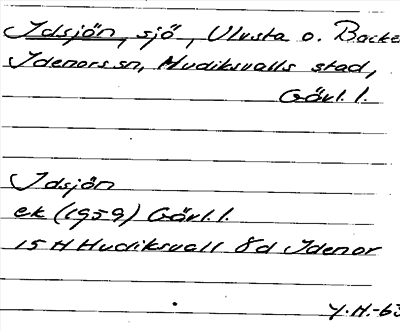 Idsjön, sjö, Ulvsta o. Backe
Idenors sn, Hudiksvalls stad,
Gävl. l.
Idsjön
ek (1959) Gävl. l.
15 H Hudiksvall 8d Idenor
Y.H.-63